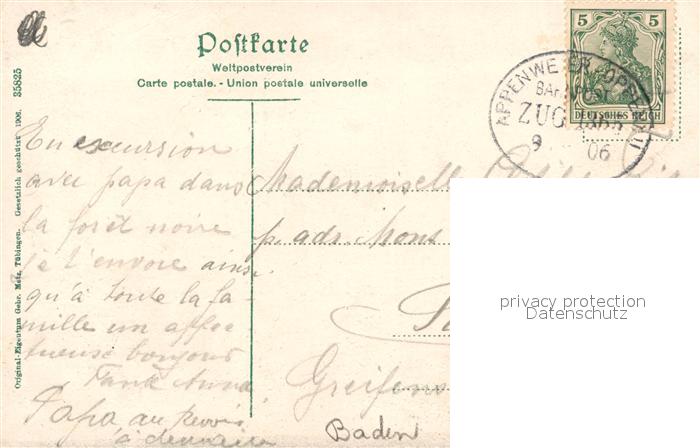 Postkarte
Weltpostverein
Carte postale. - Union postale universelle
5 5
DEUTSCHES REICH
APPENWEIER OPPENAU
BAHNPOST
ZUG
9 06
Original-Eigentum Gebr. Metz, Tübingen. Gesetzlich geschützt 1906. 35825
En excursion
avec papa dans
la forêt noire
je t'envoie ainsi
qu'à toute la fa-
mille un affec
tueuse bonjour
Tante Anna
Papa au revoir
à demain
Mademoiselle
p. adr. Mons
Greifens
Baden
privacy protection
Datenschutz